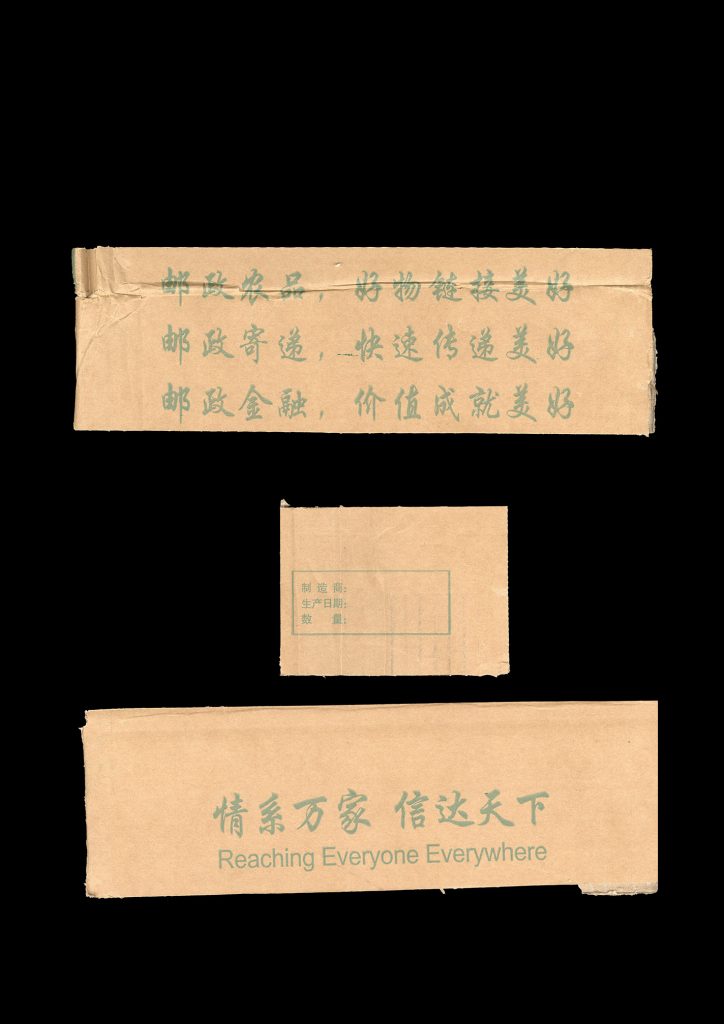 邮政农品，好物链接美好
邮政寄递，快速传递美好
邮政金融，价值成就美好
制 造 商：
生产日期：
数 量：
情系万家 信达天下
Reaching Everyone Everywhere